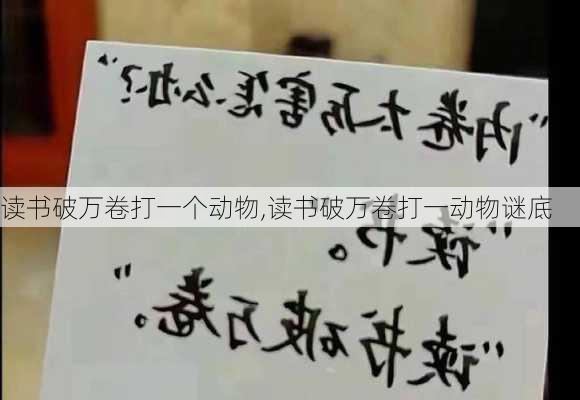 “内卷太厉害怎么办?”
读书破万卷打一个动物,读书破万卷打一动物谜底
“读书。”
“读书破万卷。”